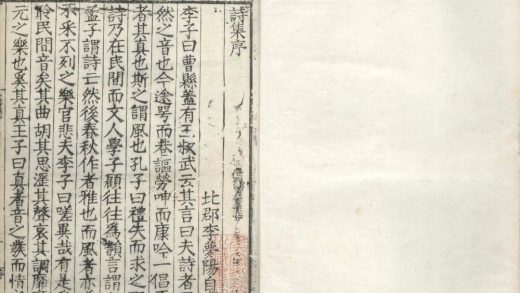 詩集序
北郡李夢陽自
李子曰曹縣蓋有王叔武云其言曰夫詩者
然之音也今途咢而巷謳勞呻而康吟一倡
者其真也斯之謂風也孔子曰禮失而求之
詩乃在民間而文人學子顧往往為韻言謂
孟子謂詩亡然後春秋作者雅也而風者亦
不采不列之樂官悲夫李子曰嗟異哉有是
聆民間音矣其曲胡其思淫其聲哀其調靡
元之樂也奚其真王子曰真者音之發而情